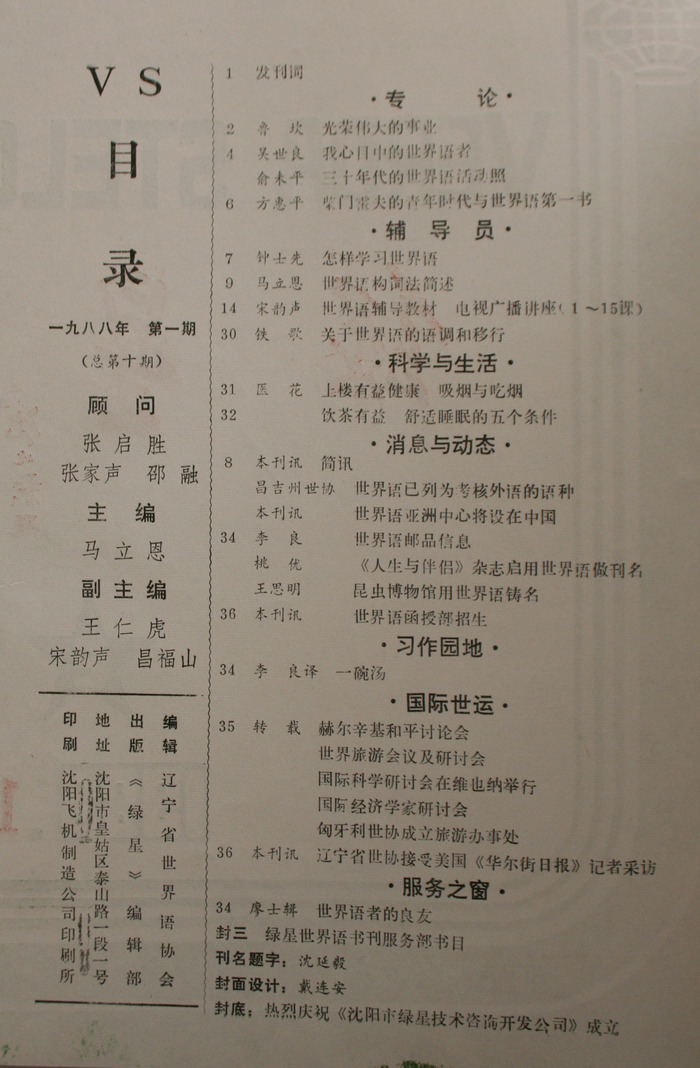 VS
目
录
一九八八年 第一期
(总第十期)
顾 问
张启胜
张家声 邵 融
主 编
马立恩
副主编
王仁虎
宋韵声 昌福山
编辑
辽宁省世界语协会
出版
《绿星》编辑部
地址
沈阳市皇姑区泰山路一段一号
印刷
沈阳飞机制造公司印刷所
1 发刊词
·专 论·
2 鲁 坎 光荣伟大的事业
4 吴世良 我心目中的世界语者
俞未平 三十年代的世界语活动照
6 方惠平 柴门霍夫的青年时代与世界语第一书
·辅导员·
7 钟士先 怎样学习世界语
9 马立恩 世界语构词法简述
14 宋韵声 世界语辅导教材 电视广播讲座(1~15课)
30 铁 歌 关于世界语的语调和移行
·科学与生活·
31 医 花 上楼有益健康 吸烟与吃烟
32 饮茶有益 舒适睡眠的五个条件
·消息与动态·
8 本刊讯 简讯
昌吉州世协 世界语已列为考核外语的语种
本刊讯 世界语亚洲中心将设在中国
34 李 良 世界语邮品信息
桃 优 《人生与伴侣》杂志启用世界语做刊名
王思明 昆虫博物馆用世界语铸名
36 本刊讯 世界语函授部招生
·习作园地·
34 李 良译 一碗汤
·国际世运·
35 转 载 赫尔辛基和平讨论会
世界旅游会议及研讨会
国际科学研讨会在维也纳举行
国际经济学家研讨会
匈牙利世协成立旅游办事处
36 本刊讯 辽宁省世协接受美国《华尔街日报》记者采访
·服务之窗·
34 廖士辑 世界语者的良友
封三 绿星世界语书刊服务部书目
刊名题字：沈延毅
封面设计：戴连安
封底：热烈庆祝《沈阳市绿星技术咨询开发公司》成立